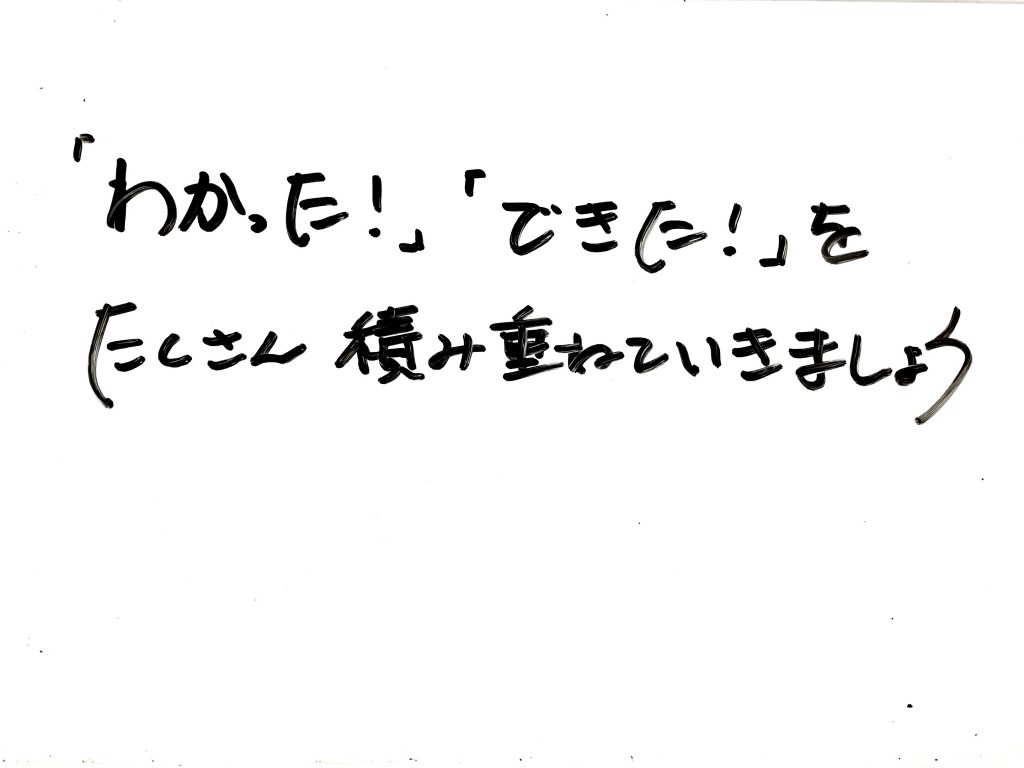 「わかった!」「できた!」を
たくさん積み重ねていきましょう